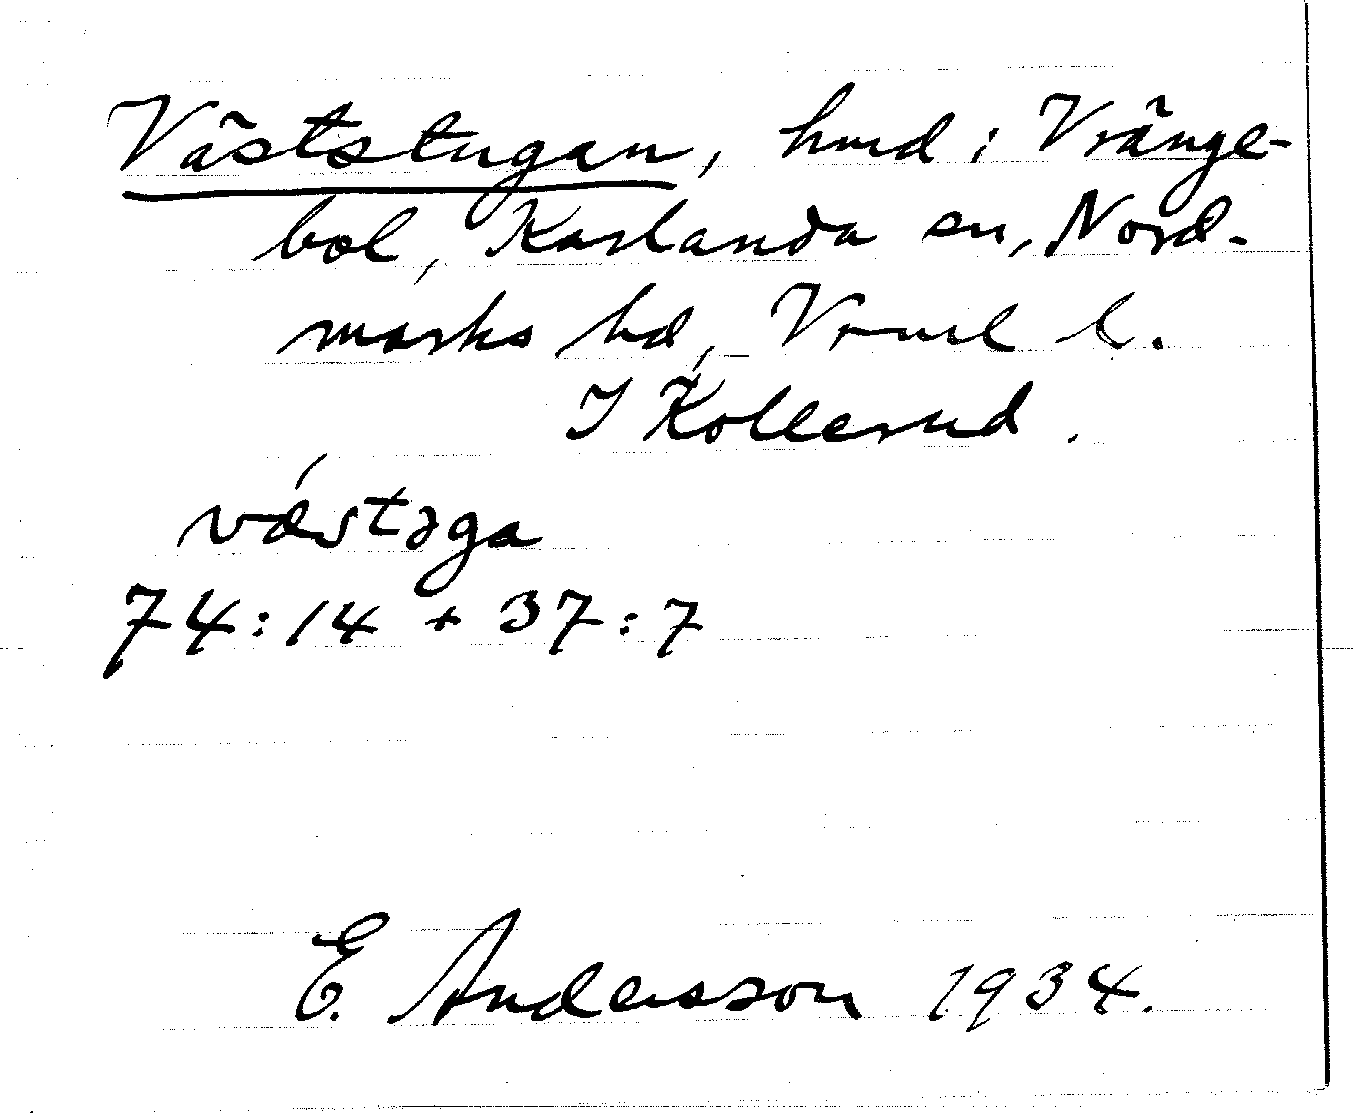 Väststugan, hmd i Vränge-
bol, Karlanda sn, Nord-
marks hd, Vrml l.
I Kollerud.
vǽstəga
74:14 + 37:7
E. Andersson 1934.